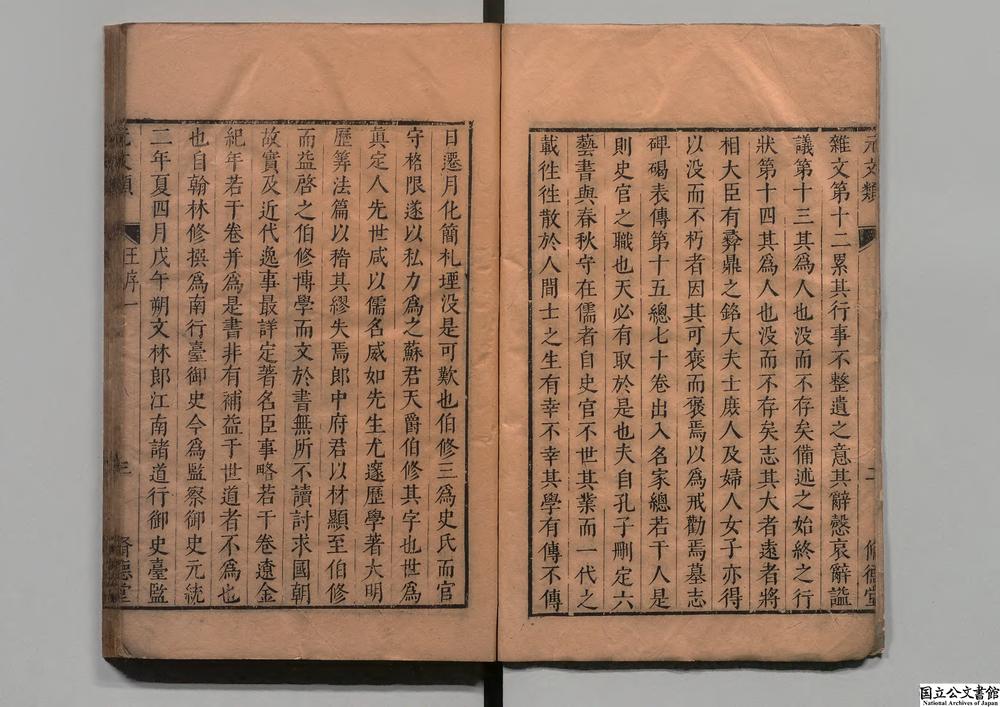 元文類 二 脩德堂
雜文第十二累其行事不整遺之意其辭慤哀辭謚
議第十三其為人也没而不存矣備述之始終之行
狀第十四其為人也没而不存矣志其大者遠者將
相大臣有彞鼎之銘大夫士庶人及婦人女子亦得
以没而不朽者因其可褒而褒焉以為戒勸焉墓志
碑碣表傳第十五總七十卷出入名家總若干人是
則史官之職也天必有取於是也夫自孔子刪定六
藝書與春秋守在儒者自史官不世其業而一代之
載徃徃散於人間士之生有幸不幸其學有傳不傳
日遷月化簡札堙没是可歎也伯修三為史氏而官
守格限遂以私力為之蘇君天爵伯修其字也世為
真定人先世咸以儒名威如先生尤邃歷學著大明
歷筭法篇以稽其繆失焉郎中府君以材顯至伯修
而益啓之伯修博學而文於書無所不讀討求國朝
故實及近代逸事最詳定著名臣事略若干卷遼金
紀年若干卷并為是書非有補益于世道者不為也
也自翰林修撰為南行臺御史今為監察御史元統
二年夏四月戊午朔文林郎江南諸道行御史臺監
元文類 王序一 三 脩德堂
国立公文書館
National Archives of Japan